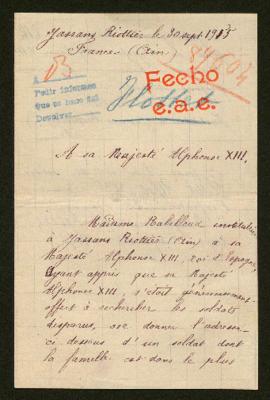 Jassans Riottier le 30 sept 1915
France (Ain)
84604
A
83
Pedir informes
Que se hace del
Devolver
Fecho
e.a.e.
A sa Majesté Alphonse XIII.
Madame
à Jassans Riottier (Ain) à sa
Majesté Alphonse XIII, roi d'Espagne,
Ayant appris que sa Majesté
Alphonse XIII, s'était généreusement
offert à rechercher les soldats
disparus, ose donner l'adresse
ci-dessous d'un soldat dont
la famille est dans le plus